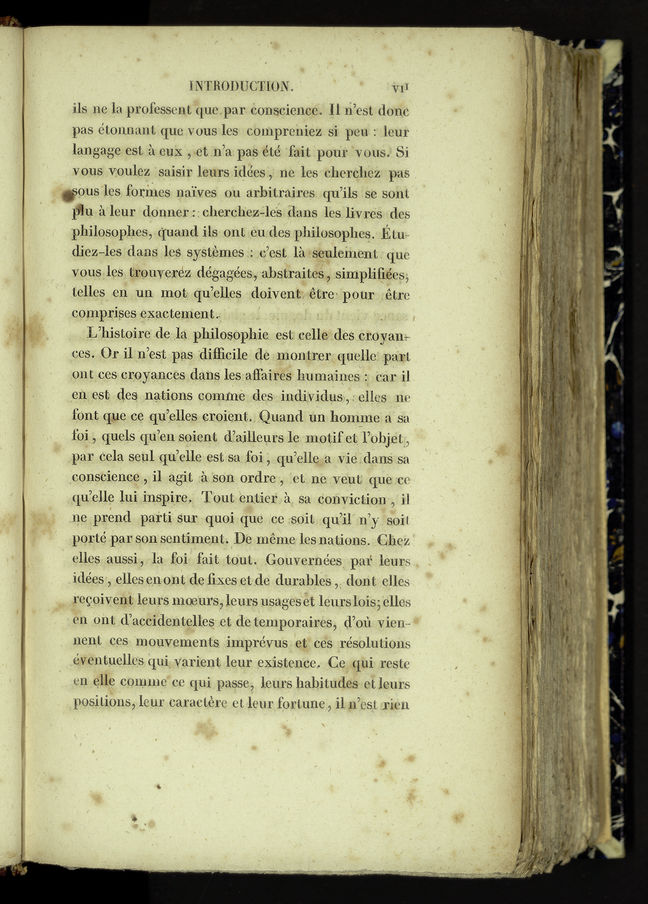 INTRODUCTION. VII
ils ne la professent que par conscience. Il n'est donc
pas étonnant que vous les compreniez si peu : leur
langage est à eux , et n'a pas été fait pour vous. Si
vous voulez saisir leurs idées, ne les cherchez pas
sous les formes naïves ou arbitraires qu'ils se sont
plu à leur donner : cherchez-les dans les livres des
philosophes, quand ils ont eu des philosophes. Étu-
diez-les dans les systèmes : c'est là seulement que
vous les trouverez dégagées, abstraites, simplifiées,
telles en un mot qu'elles doivent être pour être
comprises exactement.
L'histoire de la philosophie est celle des croyan-
ces. Or il n'est pas difficile de montrer quelle part
ont ces croyances dans les affaires humaines : car il
en est des nations comme des individus, elles ne
font que ce qu'elles croient. Quand un homme a sa
foi, quels qu'en soient d'ailleurs le motif et l'objet,
par cela seul qu'elle est sa foi, qu'elle a vie dans sa
conscience, il agit à son ordre, et ne veut que ce
qu'elle lui inspire. Tout entier à sa conviction, il
ne prend parti sur quoi que ce soit qu'il n'y soit
porté par son sentiment. De même les nations. Chez
elles aussi, la foi fait tout. Gouvernées par leurs
idées, elles en ont de fixes et de durables, dont elles
reçoivent leurs mœurs, leurs usages et leurs lois; elles
en ont d'accidentelles et de temporaires, d'où vien-
nent ces mouvements imprévus et ces résolutions
éventuelles qui varient leur existence. Ce qui reste
en elle comme ce qui passe, leurs habitudes et leurs
positions, leur caractère et leur fortune, il n'est rien